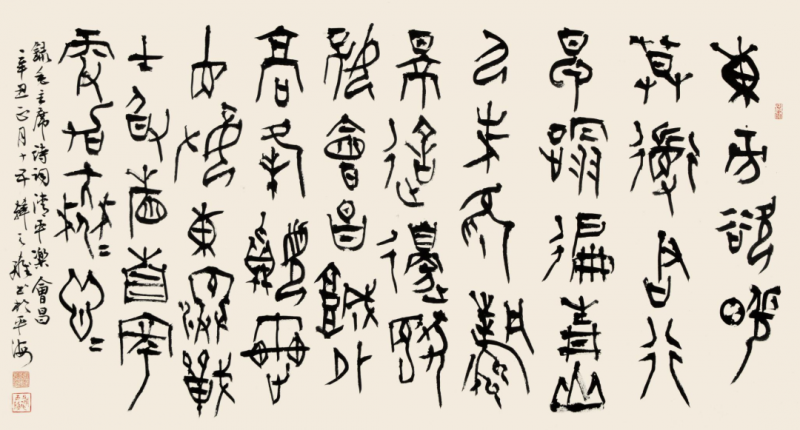 東方欲曉
莫道君行
早蹋徧青山
人未老風
景這邊獨
好會昌城外
高峰顛連
直接東溟戰
士指看南粵
更加鬱=葱=
錄毛主席詩詞清平樂會昌
辛丑正月十五韓之書於平海